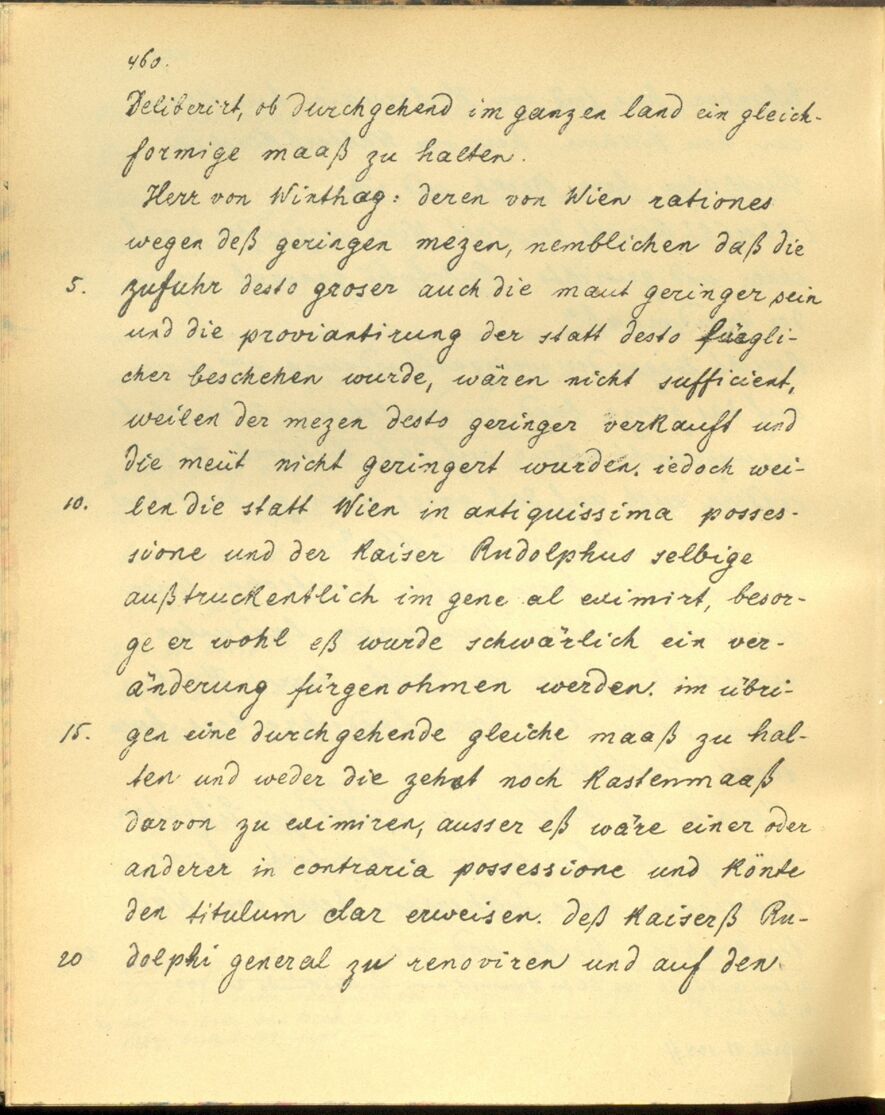 460.
Deliberirt, ob durchgehend im ganzen land ein gleich-
formige maaß zu halten.
Herr von Winthag: deren von Wien rationes
wegen deß geringen mezen, nemblichen daß die
5. zufuhr desto groser auch die maut geringer sein
und die proviantirung der statt desto fuegli-
cher beschehen wurde, wären nicht sufficient,
weilen der mezen desto geringer verkauft und
die meüt nicht geringert wurden. iedoch wei-
10. len die statt Wien in antiquissima posses-
sione und der Kaiser Rudolphus selbige
außtruckentlich im gene al eximirt, besor-
ge er wohl eß wurde schwärlich ein ver-
änderung fürgenohmen werden. im übri-
15. gen eine durchgehende gleiche maaß zu hal-
ten und weder die zehnt noch Kastenmaaß
darvon zu eximiren, ausser eß wäre einer oder
anderer in contraria possessione und könte
den titulum clar erweisen. deß Kaiserß Ru-
20 dolphi general zu renoviren und auf den